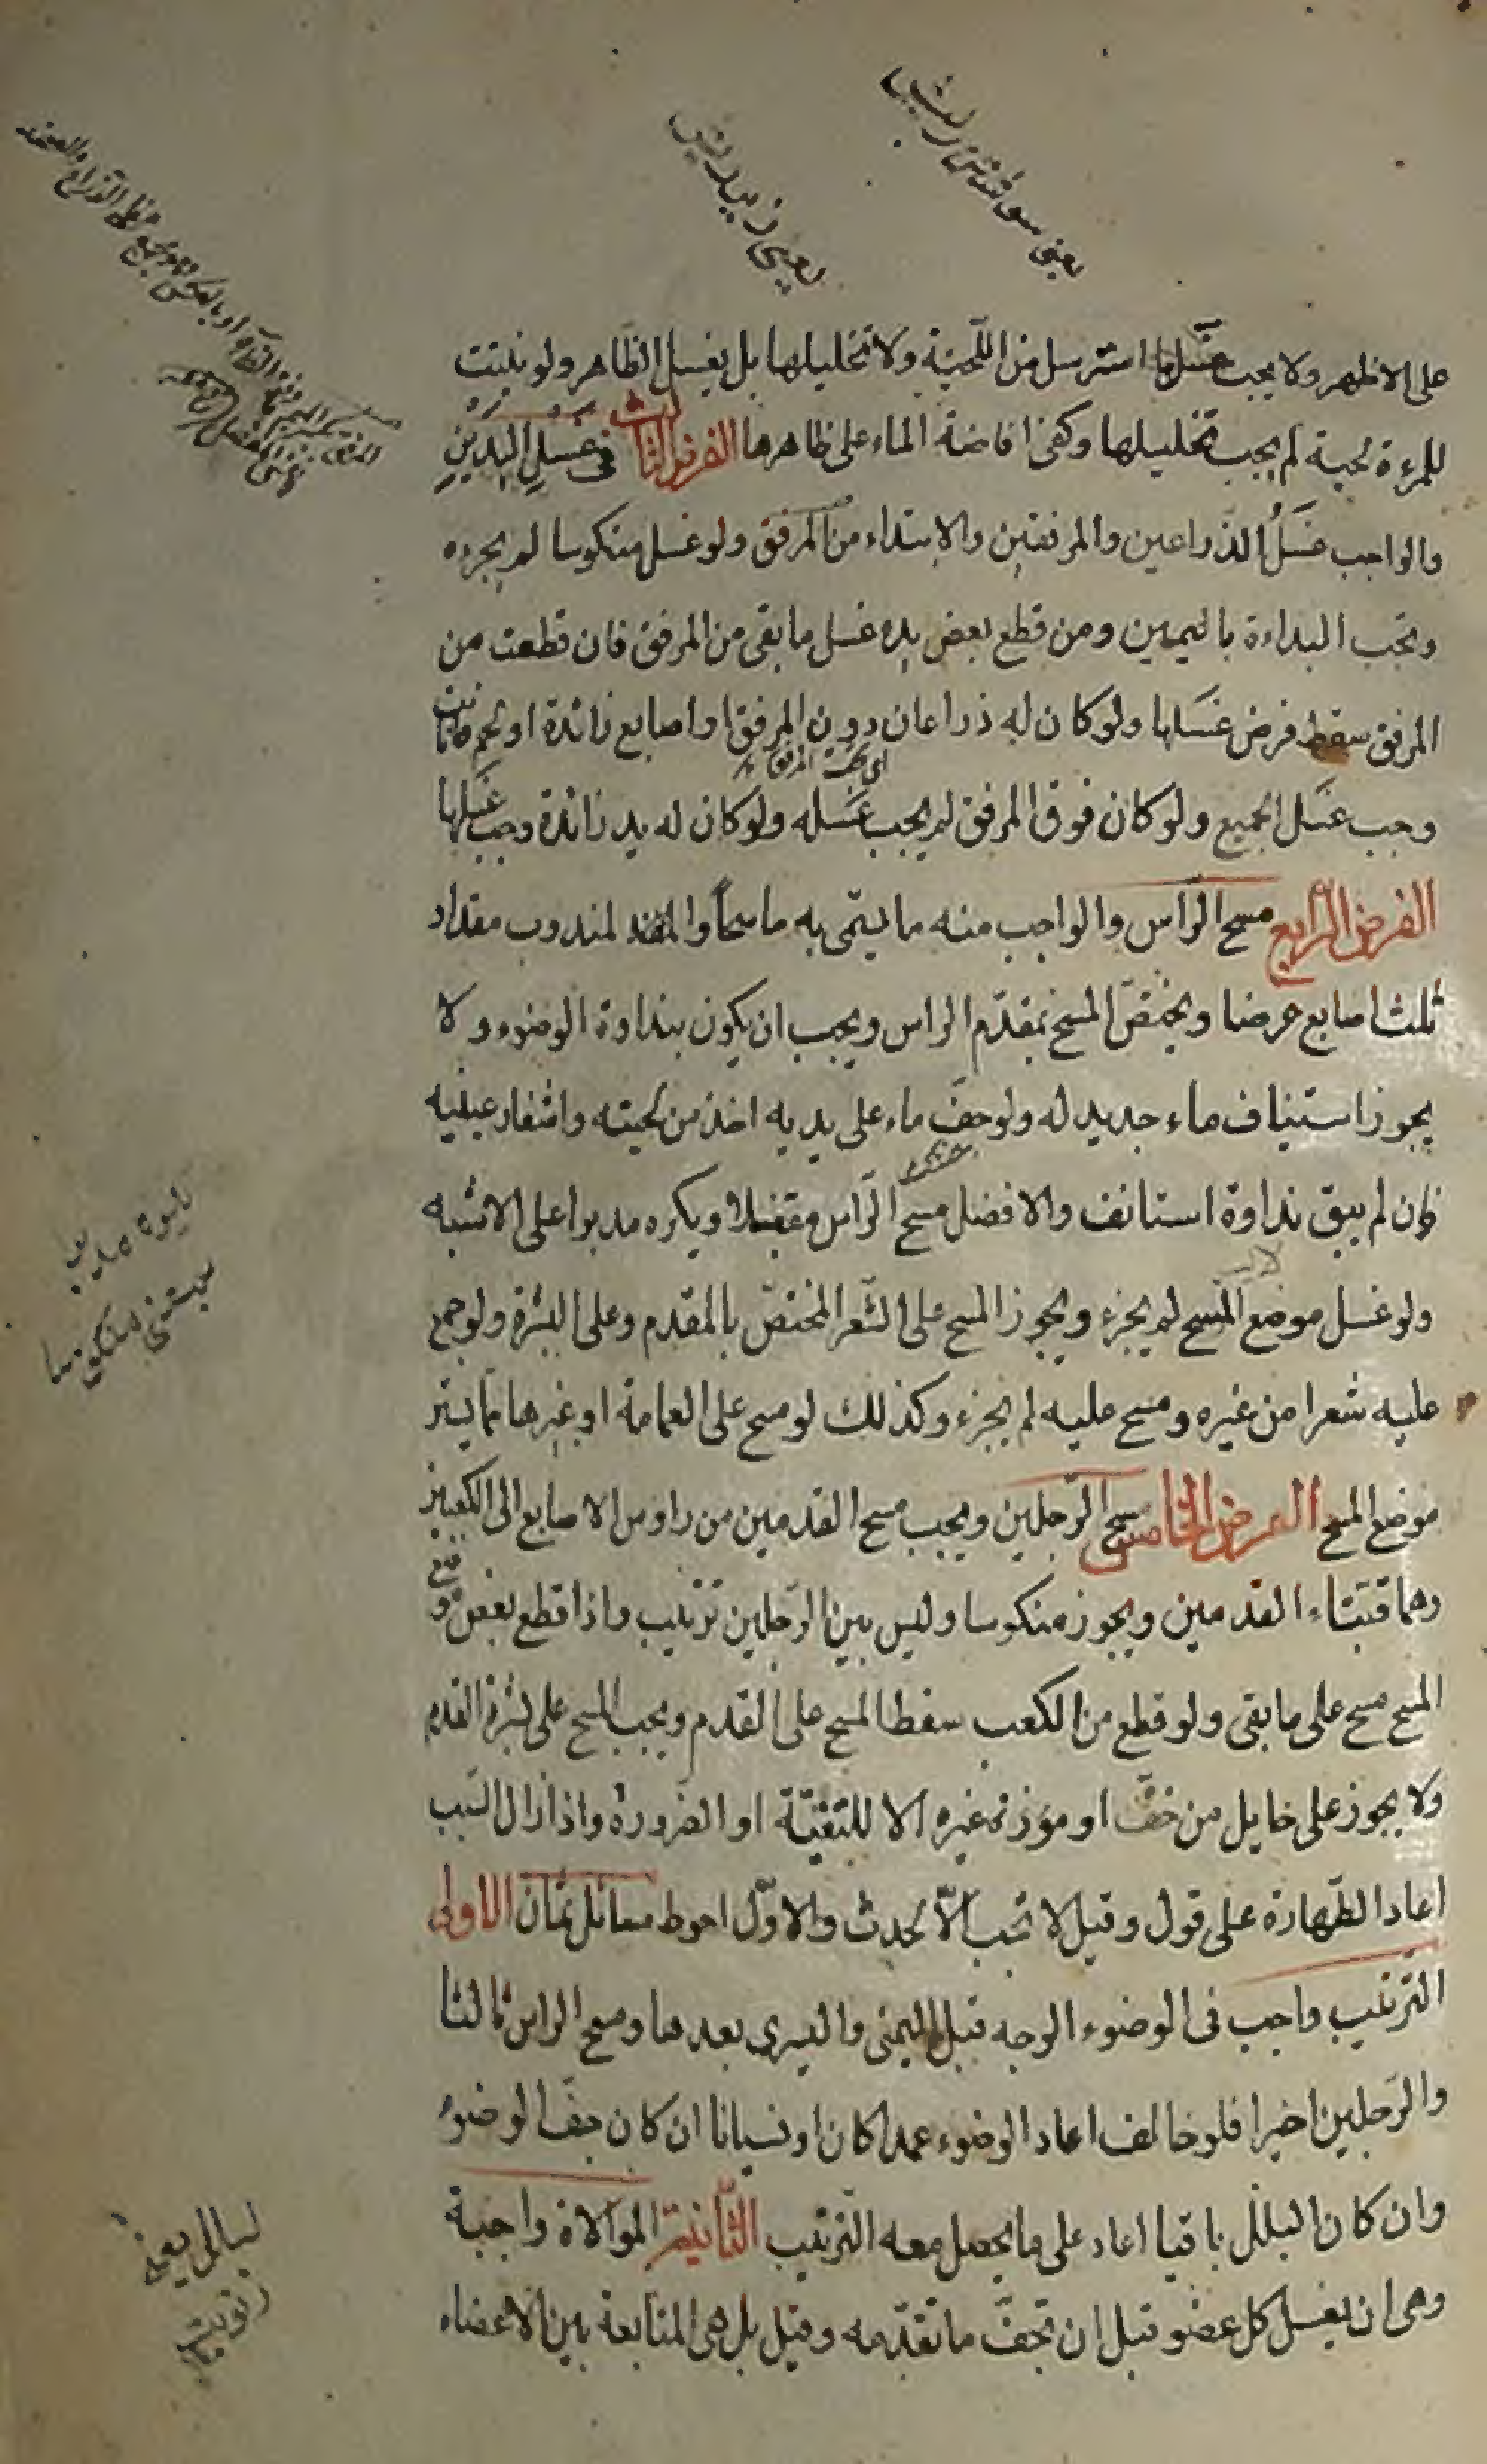 على الاظهر ولا يجب غسل ما استرسل من اللحية ولا تخليلها بل يغسل الظاهر ولو نبتت
للمرءة لحية لم يجب تخليلها وكفى افاضة الماء على ظاهرها الفرض الثالث فى غَسلِ اليَدَينِ
والواجب غَسَلُ الذراعين والمرفقين والابتداء من المرفق ولو غسل منكوسا لم يجزه
وتجب البداءة باليمين ومن قطع بعض يده غسل ما بقى من المرفق فان قطعت من
المرفق سقط فرض غسلها ولو كان له ذراعان دون المرفق او اصابع زائدة او لحم نابت
اى تحت المرفق
وجب غسل الجميع ولو كان فوق المرفق لم يجب غسله ولو كان له يد زائدة وجب غسلها
الفرض الرابع مسح الراس والواجب منه ما يسمّى به ماسحاً والمند لمندوب مقدار
ثلث اصابع عرضا ويختصّ المسح بمقدّم الراس ويجب ان يكون بنداوة الوضوء ولا
يجوز استيناف ماء جديد له ولو جفّ ماء على يديه اخذ من لحيته واشفار عينيه
فان لم يبق نداوة استانف والافضل مسح الرّاس مقبلا ويكره مدبرا على الاشبه
ولو غسل موضع المسح لم يجزء ويجوز المسح على الشّعر المختصّ بالمقدم وعلى البشرة ولو جمع
عليه شعرا من غيره ومسح عليه لم يجزء وكذلك لو مسح على العمامة او غيرها ممّا يستر
موضع المسح الفرض الخامس مسح الرّجلين ويجب مسح القدمين من راوس الاصابع الى الكعبين
وهما قبّتاء القدمين ويجوز منكوسا وليس بين الرّجلين ترتيب واذا قطع بعض موضع
المسح مسح على ما بقى ولو قطع من الكعب سقط المسح على القدم ويجب المسح على بشرة القدم
ولا يجوز على حايل من خفّ او غيره الا للتقيّة او الضّرورة واذا زال السّبب
اعاد الطّهارة على قول وقيل لا تجب الاّ لحدث والاوّل احوط مسائل ثمان الاولى
الترتيب واجب فى الوضوء الوجه قبل اليمنى واليسرى بعدها ومسح الراس ثالثا
والرّجلين اخيرا فلو خالف اعاد الوضوء عمدا كان او نسيانا ان كان جفّ الوضوء
وان كان البلل باقيا اعاد على ما يحصل معه الترتيب الثّانية الموالاة واجبة
وهى ان يغسل كل عضو قبل ان تجفّ ما تقدّمه وقيل بل هى المتابعة بين الاعضاء